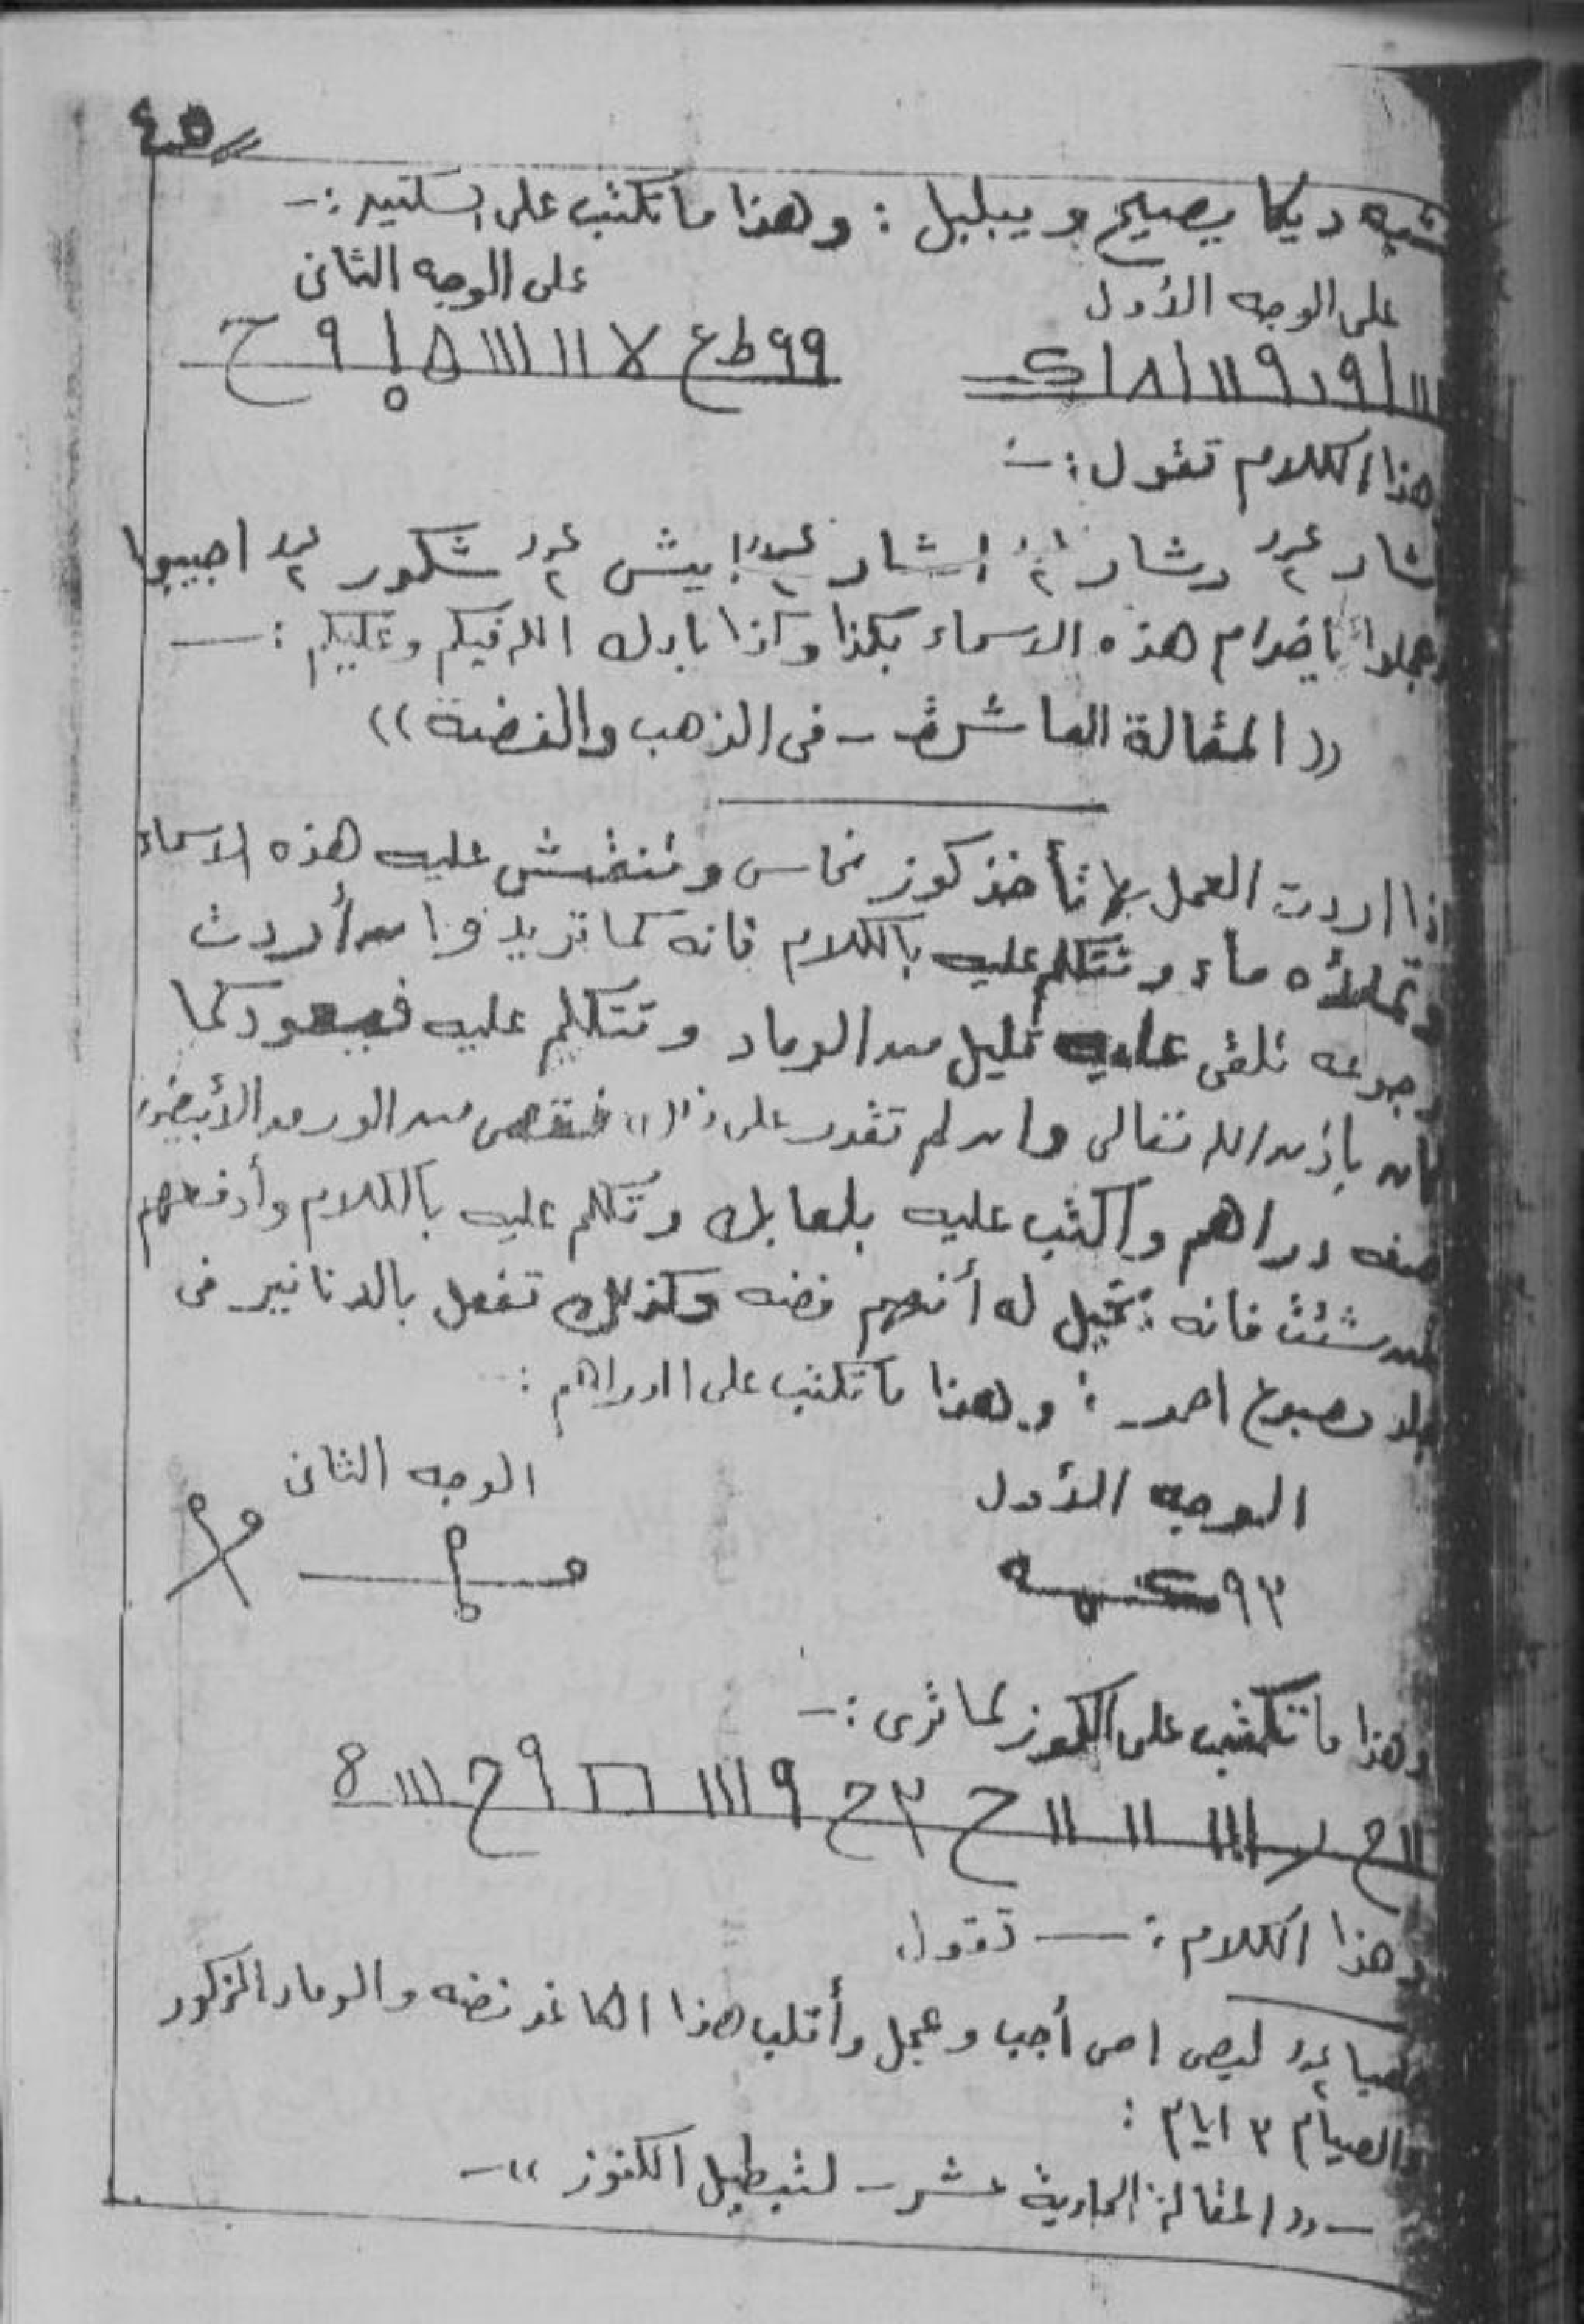 ٤٥
شبه ديكا يصيح ويبلبل : وهذا ما تكتب على السكين :-
على الوجه الأول
على الوجه الثانى
هذا الكلام تقول :-
شار ٢ شكور ٢ اجيبوا
وعجلوا ياخدام هذه الاسماء بكذا وكذا بارك الله فيكم وعليكم :-
(( المقالة العاشرة - فى الذهب والفضة ))
اذا اردت العمل بها تأخذ كوز نحاس وتنقش عليه هذه الاسماء
وتملأه ماء وتتكلم عليه بالكلام فانه كما تريد وان أردت
رجوعه تلقى عليه قليل من الرماد وتتكلم عليه فيعود كما
كان باذن الله تعالى وان لم تقدر على فتقص من الورق الأبيض
صفه دراهم واكتب عليه بلعابك وتكلم عليه بالكلام وأدفعهم
لمن شئت فانه يخيل له أنهم فضه وكذلك تفعل بالدنانير فى
جلد مصبوغ احمر : وهذا ما تكتب على الدراهم :
الوجه الأول
الوجه الثانى
وهذا ما تكتب على الكوز كما ترى :-
وهذا الكلام :- تقول
أجب وعجل وأقلب هذا الكاغد فضه والرماد المذكور
والصيام ٣ ايام :
- (( المقالة الحادية عشر - لتبطيل الكنوز )) -